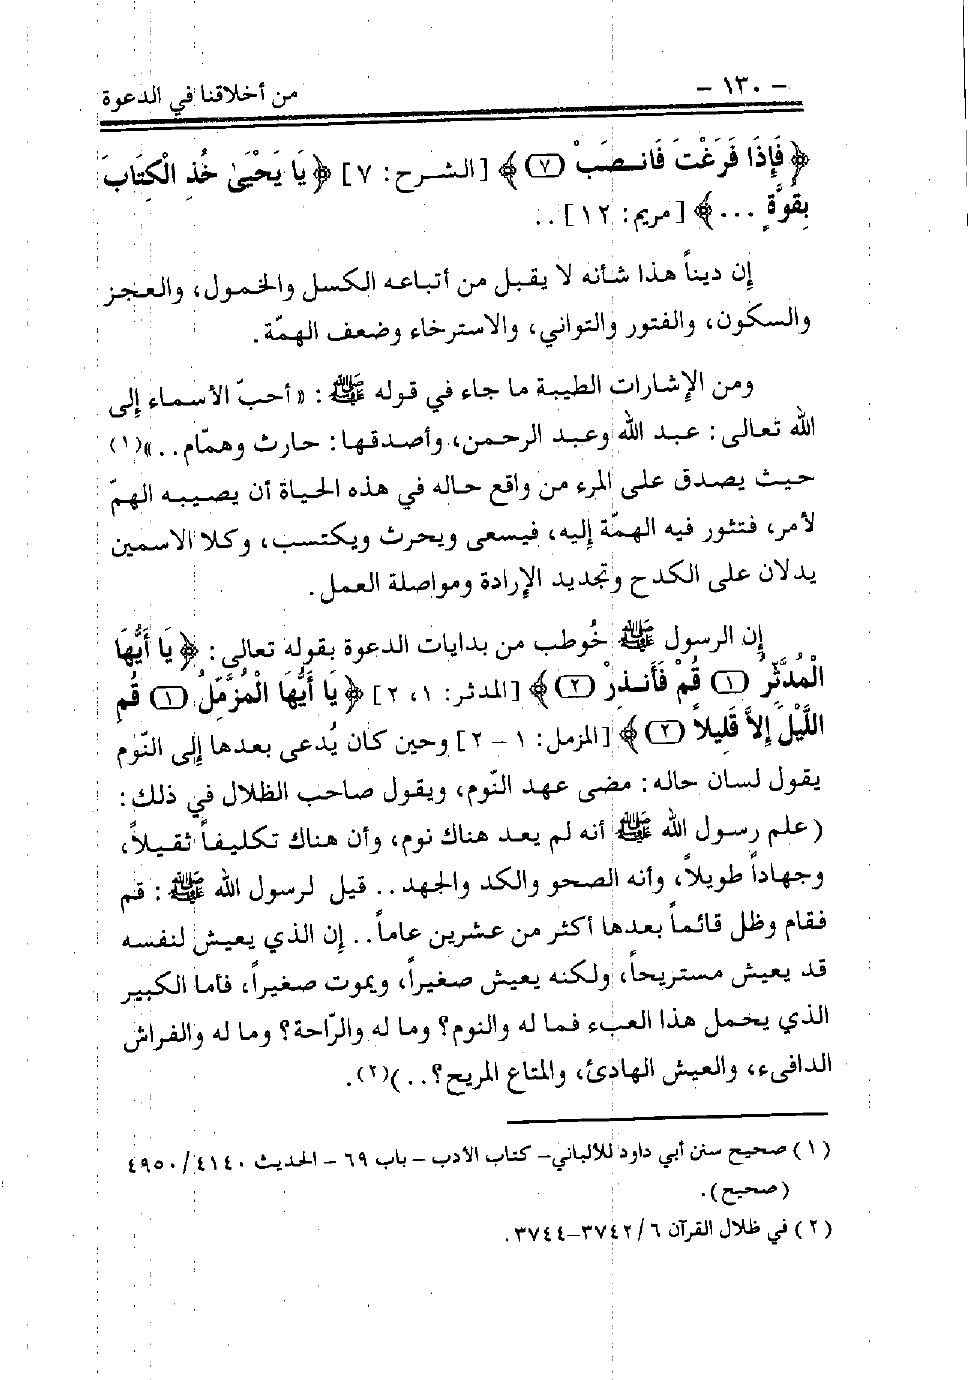 - ١٣٠ - من أخلاقنا في الدعوة
﴿ فَإِذَا فَرَغْتَ فَانصَبْ (٧) ﴾ [الشرح: ٧] ﴿ يَا يَحْيَىٰ خُذِ الْكِتَابَ
بِقُوَّةٍ ... ﴾ [مريم: ١٢] ..
إن ديناً هذا شأنه لا يقبل من أتباعه الكسل والخمول، والعجز
والسكون، والفتور والتواني، والاسترخاء وضعف الهمّة.
ومن الإشارات الطيبة ما جاء في قوله ﷺ : «أحبّ الأسماء إلى
الله تعالى: عبد الله وعبد الرحمن، وأصدقها: حارث وهمّام..»(١)
حيث يصدق على المرء من واقع حاله في هذه الحياة أن يصيبه الهمّ
لأمر، فتثور فيه الهمّة إليه، فيسعى ويحرث ويكتسب، وكلا الاسمين
يدلان على الكدح وتجديد الإرادة ومواصلة العمل.
إن الرسول ﷺ خُوطب من بدايات الدعوة بقوله تعالى: ﴿ يَا أَيُّهَا
الْمُدَّثِّرُ (١) قُمْ فَأَنذِرْ (٢) ﴾ [المدثر: ١، ٢] ﴿ يَا أَيُّهَا الْمُزَّمِّلُ (١) قُمِ
اللَّيْلَ إِلاَّ قَلِيلاً (٢) ﴾ [المزمل: ١ - ٢] وحين كان يُدعى بعدها إلى النّوم
يقول لسان حاله: مضى عهد النّوم، ويقول صاحب الظلال في ذلك:
(علم رسول الله ﷺ أنه لم يعد هناك نوم، وأن هناك تكليفاً ثقيلاً،
وجهاداً طويلاً، وأنه الصحو والكد والجهد.. قيل لرسول الله ﷺ : قم
فقام وظل قائماً بعدها أكثر من عشرين عاماً.. إن الذي يعيش لنفسه
قد يعيش مستريحاً، ولكنه يعيش صغيراً، ويموت صغيراً، فأما الكبير
الذي يحمل هذا العبء فما له والنوم؟ وما له والرّاحة؟ وما له والفراش
الدافىء، والعيش الهادئ، والمتاع المريح؟..)(٢).
(١) صحيح سنن أبي داود للألباني- كتاب الأدب - باب ٦٩ - الحديث ٤٩٥٠/٤١٤٠
(صحيح).
(٢) في ظلال القرآن ٣٧٤٢/٦-٣٧٤٤.